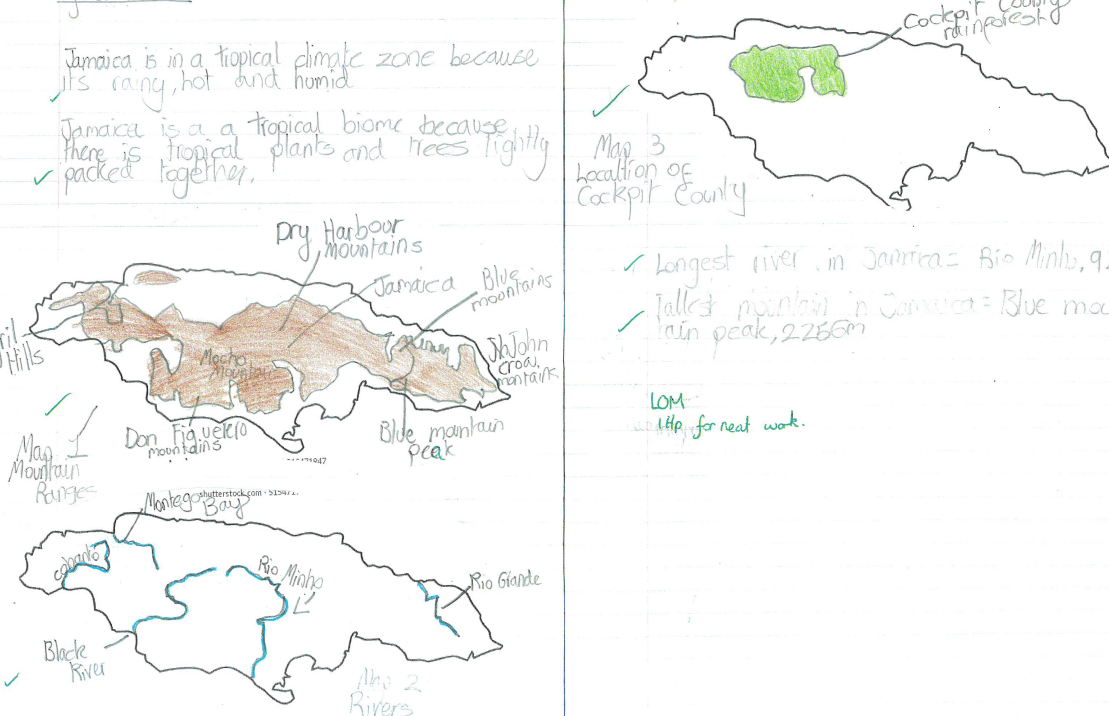 Jamaica is in a tropical climate zone because
its rainy, hot and humid
Jamaica is a a tropical biome because
there is tropical plants and trees tightly
packed together.
Dry Harbour
mountains
Jamaica
Blue
mountains
John
crow
montains
ril
Hills
Mocho
Mountain
Don Figuelero
mountains
Blue mountain
peak
Map 1
Mountain
Ranges
shutterstock.com · 515471.
Montego
Bay
Rio Minho
Rio Giande
Black
River
Map 2
Rivers
Cockpit County
rainforest
Map 3
Localtion of
Cockpit County
Longest river in Jamaica = Rio Minho, 9
Tallest mountain in Jamaica = Blue mou
tain peak, 2256m
LOM
1Hp for neat work.